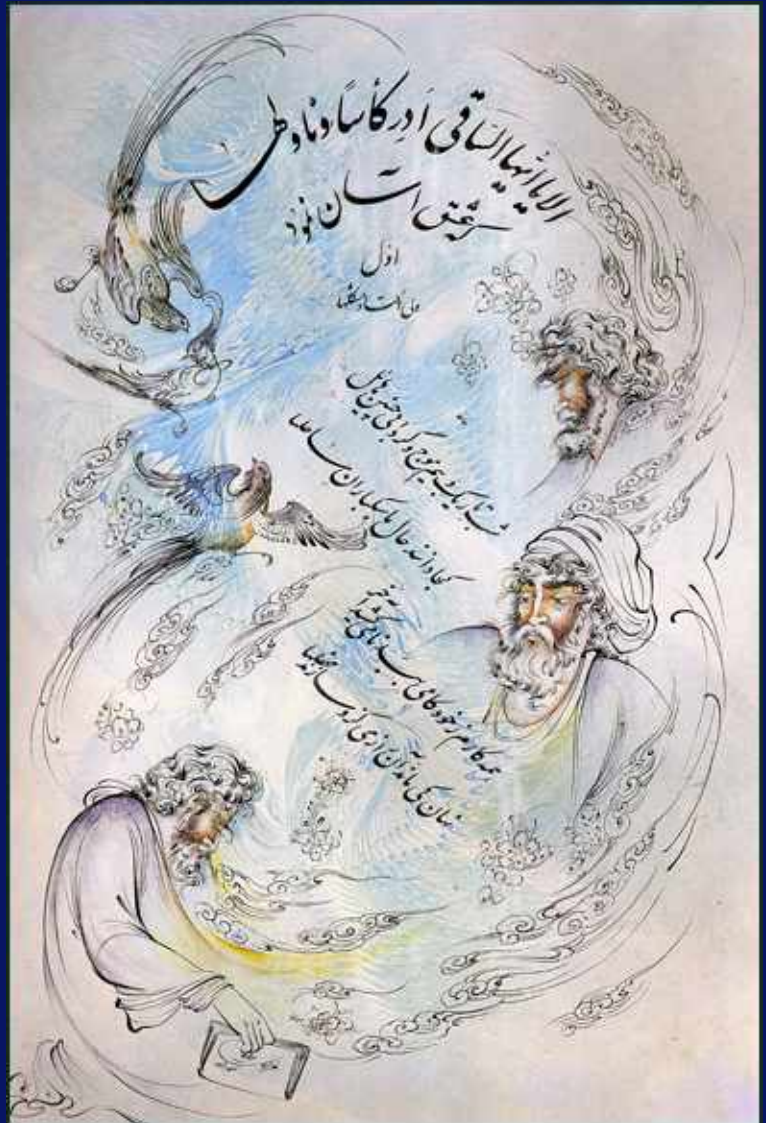 الا یا ایّها السّاقی اَدِر کأساً و ناولها
که عشق آسان نمود
اوّل
ولی افتاد مشکلها
شب تاریک و بیم موج و گردابی چنین هایل
کجا دانند حال ما سبکباران ساحلها
همه کارم ز خودکامی به بدنامی کشید آخر
نهان کی ماند آن رازی کزو سازند محفلها